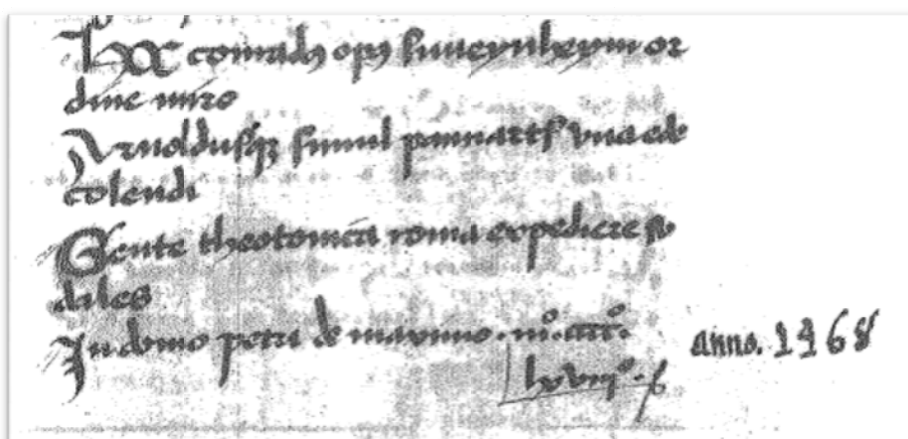 Hoc conradus opus suueynheym or
dine miro
Arnoldusque simul pannarts una ede
colendi
Gente theotonica roma expediere so
dales
In domo petri de maximo. mº.cccc.
lxviijº.
anno. 1468